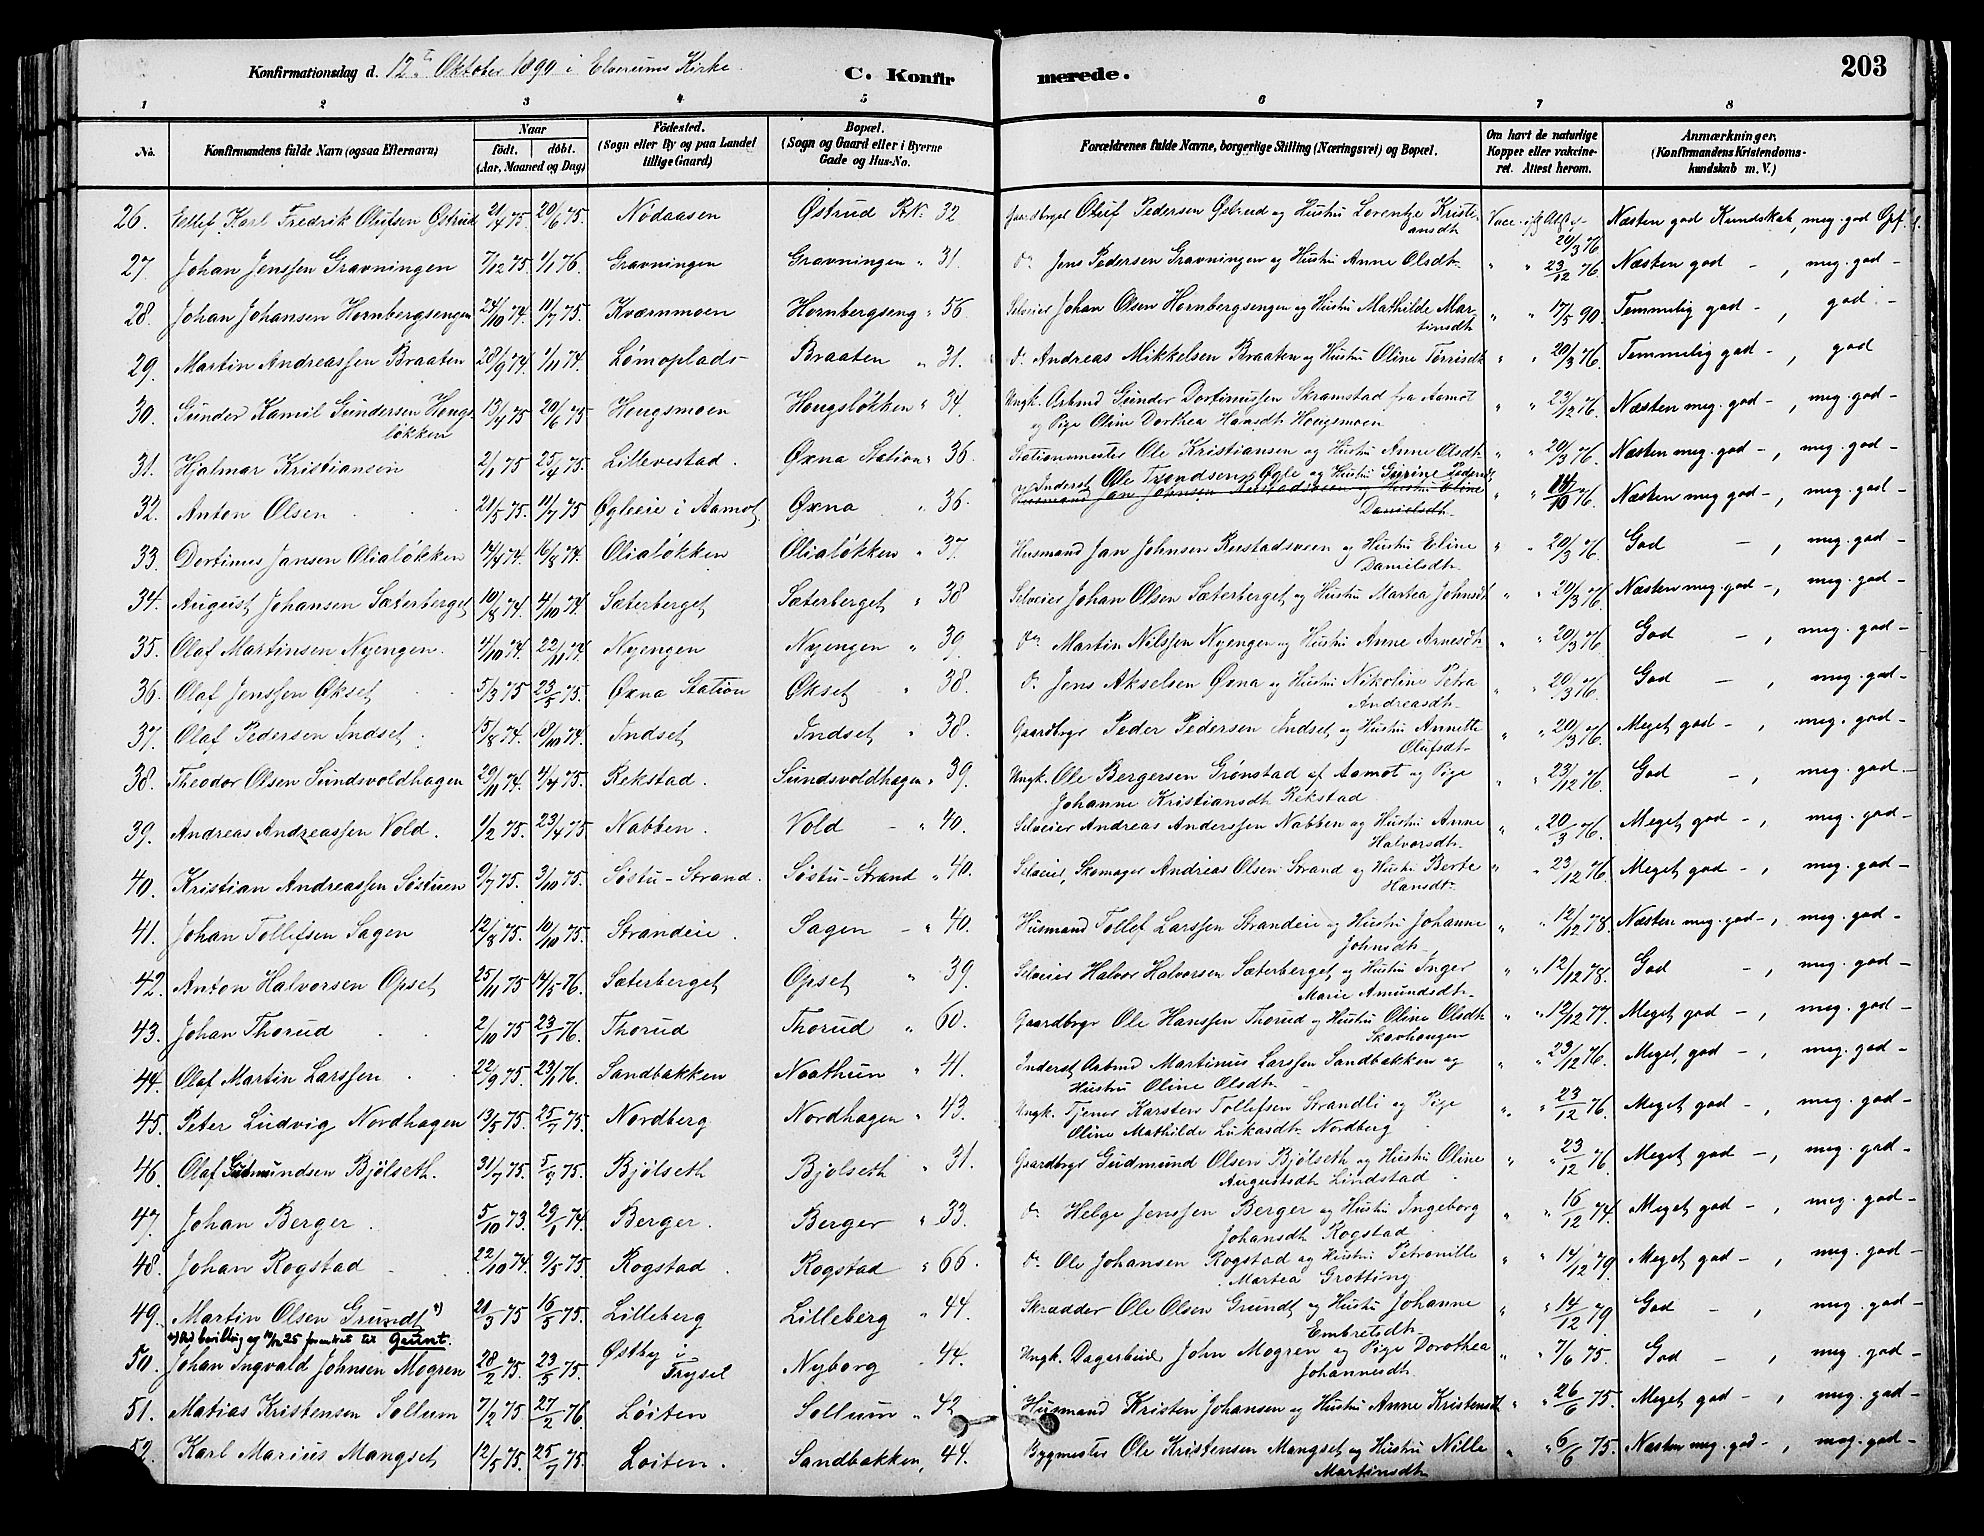 Konfirmationsdag d. 12te Oktober 1890 i Elverums Kirke. C. Konfirmerede. 203
1 2 3 4 5 6 7 8
No. Konfirmandens fulde Navn (ogsaa Efternavn) Naar født. døbt. (Aar, Maaned og Dag) Fødested. (Sogn eller By og paa Landet tillige Gaard) Bopæl. (Sogn og Gaard eller i Byerne Gade og Hus-No. Forældrenes fulde Navne, borgerlige Stilling (Næringsvei) og Bopæl. Om havt de naturlige Kopper eller vakcineret. Attest herom. Anmærkninger. (Konfirmandens Kristendomskundskab m. V.)
26. Karl Fredrik Olufsen Østrud 21/4 75 20/6 75. Nodaasen Østrud 32 Oluf Pedersen Østrud og Hustru Lorentze Kristiansdtr. Vacc. 20/3 76 Næsten god Kundskab, meg. god
27. Johan Jenssen Gravningen 7/12 75. 1/1 76. Gravningen Gravningen " 31. do Jens Pedersen Gravningen og Hustru Anne Olsdtr. " " 23/12 76. Næsten god - , meg. god -
28. Johan Johansen Hornbergsengen 24/10 74. 11/7 75. Kværnmoen Hornbergseng " 56. Selveier Johan Olsen Hornbergsengen og Hustru Mathilde Martinsdtr. " " 17/5 90. Temmelig god - , god -
29. Martin Andreassen Braaten 28/9 74. 1/11 74. Lømoplads Braaten " 31. do Andreas Mikkelsen Braaten og Hustru Oline Torrisdtr. " " 20/3 76. Temmelig god - , god
30. Gunder Kamil Gundersen Hougsløkken 13/4 75 20/6 75. Hougsmoen Hougsløkken " 34. Ungk. Arbmd Gunder Dortinussen Skramstad fra Aamot og Pige Oline Dorthea Hansdtr Hougsmoen " " 23/12 76. Næsten meg. god - , meg. god -
31. Hjalmar Kristiansen 2/1 75 25/4 75. Lillevestad. Øxna Station " 36. Stationsmester Ole Kristiansen og Hustru Anne Olsdtr. " " 20/3 76. Næsten meg. god - , meg. god -
32. Anton Olsen 21/5 75. 11/7 75 Ögleeie i Aamot Øxna " 36. Inderst Ole Trondsen Øgle og Hustru Pedersdtr. Husmand Jan Johnsen og Hustru Eline Danielsdtr. " " 76. Næsten meg god -, meg. god -
33. Dortinus Jansen Olialøkken 14/4 74. 16/8 74. Olialøkken Olialøkken " 37. Husmand Jan Johnsen og Hustru Eline Danielsdtr. " " 20/3 76. God - , meg. god -
34. August Johansen Sæterberget 10/8 74. 4/10 74. Sæterberget Sæterberget " 38 Selveier Johan Olsen Sæterberget og Hustru Martea Johnsdtr " " 20/3 76. Næsten meg. god -, meg. god -
35. Olaf Martinsen Nyengen. 4/10 74. 22/11 74. Nyengen Nyengen " 39. do Martin Nilssen Nyengen og Hustru Anne Arnesdtr. " " 20/3 76. God - , meg. god -
36. Olaf Jenssen Økset 5/3 75 23/5 75. Øxna Station Økset " 38. do Jens Akselsen Øxna og Hustru Nikoline Petra Andreasdtr. " " 20/3 76. God - , meg. god -
37. Olaf Pedersen Indset 15/8 74. 18/10 74. Indset Indset " 38. Gaardbrgr Peder Pedersen Indset og Hustru Annette Olufsdtr. " " 20/3 76. Meget god - , meg. god -
38. Theodor Olsen Sundsvoldhagen 29/11 74. 4/4 75. Rekstad. Sundsvoldhagen " 39. Ungk. Ole Bergersen Grønstad af Aamot og Pige Johanne Kristiansdtr Rekstad " " 23/12 76. God - , meg. god -
39. Andreas Andreassen Vold. 1/2 75. 23/4 75 Nabben. Vold - " 40. Selveier Andreas Anderssen Nabben og Hustru Anne Halvorsdtr. " " 20/3 76. Meget god - , meg. god -
40. Kristian Andreassen Søstuen 9/7 75. 3/10 75. Søstu-Strand. Søstu-Strand " 40. Selveier, Skomager Andreas Olsen Strand og Hustru Berte Hansdtr. " " 23/12 76. Meget god - , meg. god -
41. Johan Tollefsen Sagen 12/8 75. 10/10 75. Strandeie. Sagen - " 40. Husmand Tollef Larssen Strandeie og Hustru Johanne Johnsdtr. " " 12/12 78. Næsten meg. god -, meg. god -
42. Anton Halvorsen Opset 25/11 75 14/5 76. Sæterberget Opset " 39. Selveier Halvor Halvorsen Sæterberget og Hustru Inger Marie Amundsdtr. " " 12/12 78. God - , meg. god -
43. Johan Thorud 2/10 75 23/1 76. Thorud Thorud " 60. Gaardbrgr Ole Hanssen Thorud og Hustru Oline Olsdtr. Skovhougen " " 12/12 77. Meget god - , meg. god -
44. Olaf Martin Larssen 22/9 75. 23/1 76. Sandbakken Noathun " 41. Inderst Arbmd Martinus Larssen Sandbakken og Hustru Oline Olsdtr. " " 23/12 76. Meget god - , meg. god -
45. Peter Ludvig Nordhagen 13/5 75. 25/7 75. Nordberg Nordhagen " 43. Ungk. Tjener Karsten Tollefsen Strandli og Pige Oline Mathilde Lukasdtr. Nordberg " " 23/12 76. Meget god - , meg. god -
46. Olaf Gudmundsen Bjölseth. 31/7 75. 5/9 75. Bjölseth Bjolseth " 31. Gaardbrgr Gudmund Olsen Bjölseth og Hustru Oline Augustsdtr Lindstad " " 23/12 76. Meget god - , meg. god -
47. Johan Berger. 5/10 73. 29/1 74. Berger. Berger " 33. do Helge Jenssen Berger og Hustru Ingeborg Johansdtr Rogstad " " 16/12 74. Meget god - , meg. god -
48. Johan Rogstad 22/10 74. 9/5 75. Rogstad. Rogstad " 66. do Ole Johansen Rogstad og Hustru Petronille Martea Grotting " " 14/12 79. Meget god - , meg. god -
49. Martin Olsen Grundt *) 21/3 75 16/5 75. Lilleberg Lilleberg " 44. Skrædder Ole Olsen Grundt og Hustru Johanne Embretsdtr. " " 14/12 79. God - , meg. god -
*) Ved bevilling av 25 forandret til Gaunt.
50. Johan Ingvald Johnsen Mogren 28/2 75. 23/5 75. Østby i Trysil Nyborg - 44. Ungk. Dagarbeid John Mogren og Pige Dorothea Johannesdtr. " " 7/6 75. God - , meg. god -
51. Matias Kristensen Sollum 7/2 75. 27/2 76. Löiten Sollum " 42 Husmand Kristen Johansen og Hustru Anne Kristensdtr " " 26/6 75. Meget god - , meg. god -
52. Karl Marius Mangset 12/5 75. 25/7 75. Loiten. Sandbakken, 44. Bygmester Ole Kristensen Mangset og Hustru Nille Martinsdtr " " 6/6 75. Næsten meg. god - , meg. god -